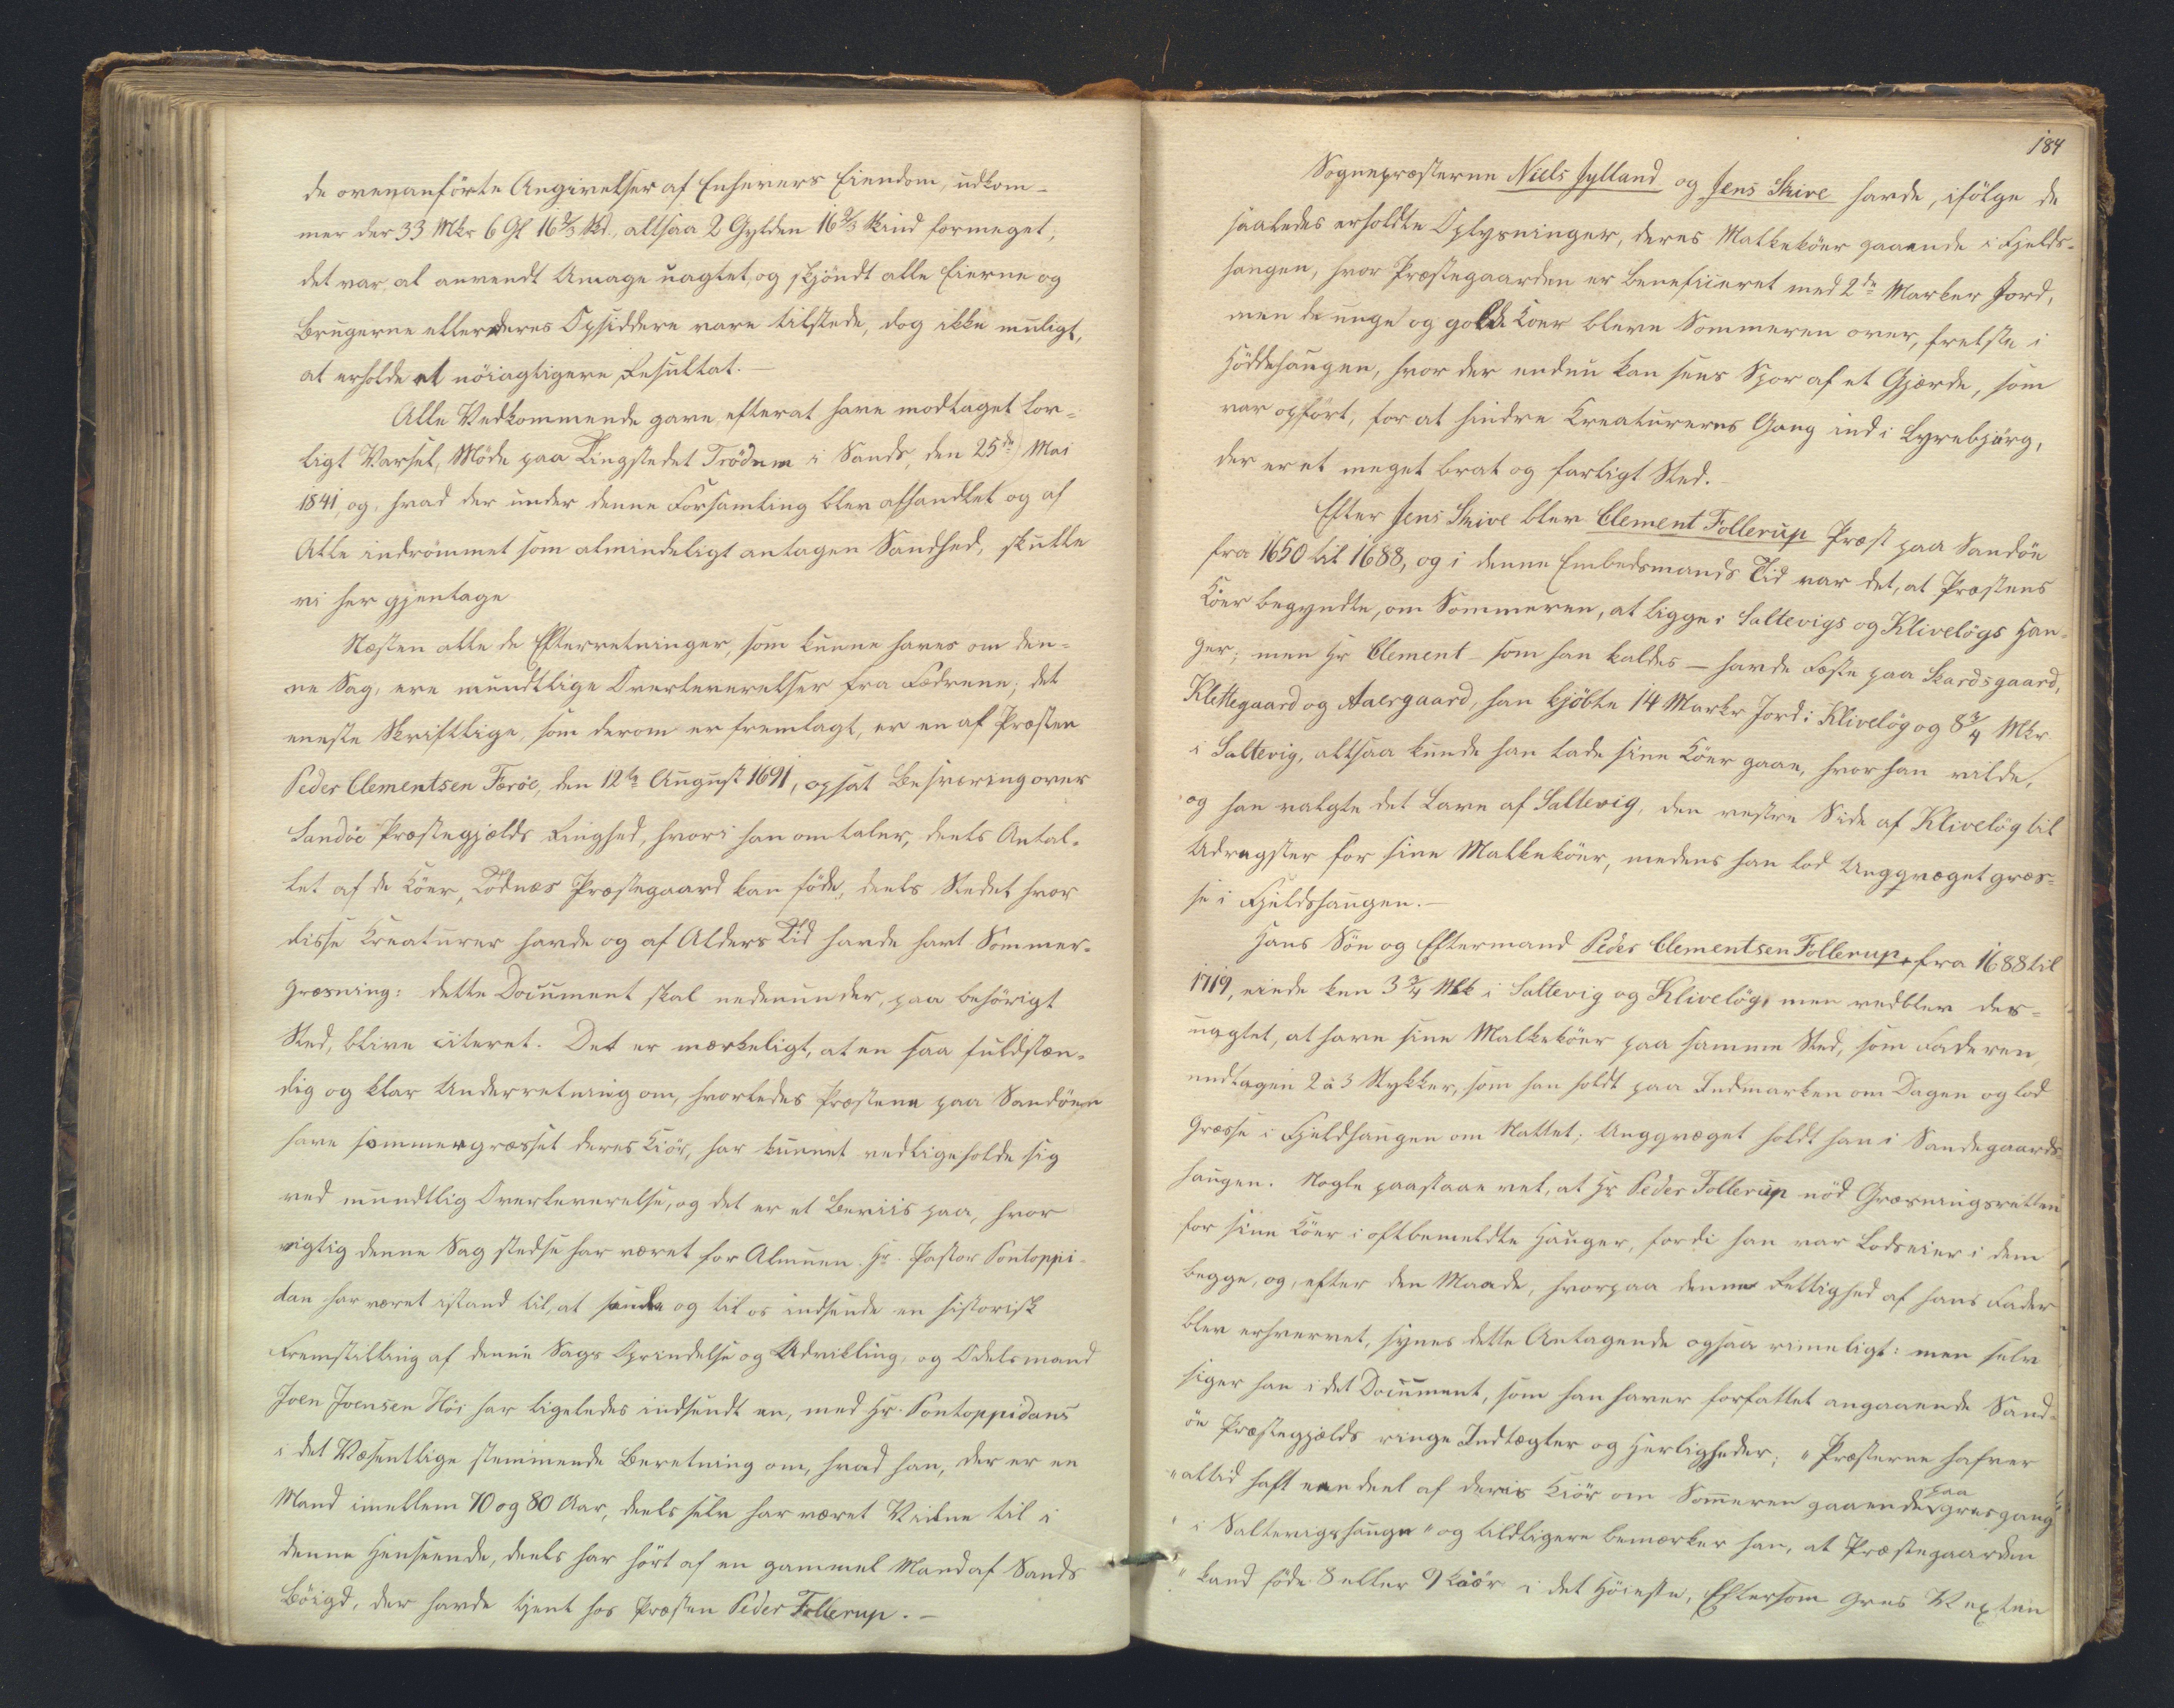 de ovenanførte Angivelser af Enhvers Eiendom, udkom-
mer der 33 Mkr 6 Gl 16 2/3 Skd, altsaa 2 Gylden 16 2/3 Skind formeget,
det var, al anvendt Umage uagtet, og skjöndt alle Eierne og
Brugerne eller deres Opsiddere vare tilstede, dog ikke muligt,
at erholde et nöiagtigere Resultat. —
Alle Vedkommende gave, efterat have modtaget lov-
ligt Varsel, Möde paa Tingstedet Trödum i Sands, den 25de Mai
1841, og, hvad der under denne Forsamling blev afhandlet og af
Alle indrömmet som almindeligt antagen Sandhed, skulle
vi her gjentage
Næsten alle de Efterretninger, som kunne haves om den-
ne Sag, ere mundtlige Overleverelser fra Fædrene; det
eneste Skriftlige, som derom er fremlagt, er en af Præsten
Peder Clementsen Færöe, den 12te August 1691, opsat Besværing over
Sandöe Præstegjælds Ringhed, hvori han omtaler, deels Antal-
let af de Köer, Todnæs Præstegaard kan föde, deels Stedet hvor
disse Kreaturer havde og af Alders Tid havde havt Sommer-
græsning: dette Document skal nedenunder, paa behörigt
Sted, blive citeret. Det er mærkeligt, at en saa fuldstæn-
dig og klar Underretning om, hvorledes Præstene paa Sandöen
have sommergræsset deres Kiör, har kunnet vedligeholde sig
ved mundtlig Overleverelse, og det er et Beviis paa, hvor
vigtig denne Sag stedse har været for Almuen. Hr. Pastor Pontoppi-
dan har været istand til, at samle og til os indsende en historisk
Fremstilling af denne Sags Oprindelse og Udvikling, og Odelsmand
Joen Joensen Höi har ligeledes indsendt en, med Hr. Pontoppidans
i det Væsentlige stemmende Beretning om, hvad han, der er en
Mand imellem 70 og 80 Aar, deels selv har været Vidne til i
denne Henseende, deels har hört af en gammel Mand af Sands
Böigd, der havde tjent hos Præsten Peder Follerup. —
184
Sognepræsterne Niels Jylland og Jens Skive havde, ifölge de
saaledes erholdte Oplysninger, deres Malkeköer gaaende i Fjelds-
haugen, hvor Præstegaarden er beneficeret med 2de Marker Jord,
men de unge og golde Köer bleve Sommeren over, frelste i
Höddehaugen, hvor der endnu kan sees Spor af et Gjærde, som
var opfört, for at hindre Creaturernes Gang ind i Lyrebjärg,
der er et meget brat og farligt Sted. —
Efter Jens Skive blev Clement Follerup Præst paa Sandöe
fra 1650 til 1688, og i denne Embedsmands Tid var det, at Præstens
Köer begyndte, om Sommeren, at ligge i Saltevigs og Kliveløgs Hau-
ger; men Hr Clement – som han kaldes – havde Fæste paa Skardsgaard,
Klettegaard og Aaergaard, han kjöbte 14 Markr Jord i Kliveløg og 8 3/4 Mkr
i Saltevig, altsaa kunde han lade sine Köer gaae, hvor han vilde,
og han valgte det Lave af Saltevig, den vestre Side af Kliveløg til
Udrægster for sine Malkeköer, medens han lod Ungqvæget græs-
se i Fjeldshaugen. —
Hans Sön og Eftermand Peder Clementsen Follerup, fra 1688 til
1719, eiede kun 3 3/4 Mk i Saltevig og Kliveløg, men vedblev des-
uagtet, at have sine Malkeköer paa samme Sted, som Faderen,
undtagen 2 à 3 Stykker, som han holdt paa Indmarken om Dagen og lod
græsse i Fjeldhaugen om Nattet; Ungqvæget holdt han i Sandegaards-
haugen. Nogle paastaae vel, at Hr Peder Follerup nöd Græsningsretten
for sine Köer i oftbemeldte Hauger, fordi han var Lodseier i dem
begge, og, efter den Maade, hvorpaa denne Rettighed af hans Fader
blev erhvervet, synes dette Antagende ogsaa rimeligt: men selv
siger han i det Document, som han haver forfattet angaaende Sand-
öe Præstegjælds ringe Indtægter og Herligheder; "Præsterne hafver
"altid haft een deel af deris Kiör om Sommeren gaaende paa græsgang
"i Saltevigshauge" og tildligere bemærker han, at Præstegaarden
"kand föde 8 eller 9 Kiör i det Höieste, Eftersom Græs Vexten